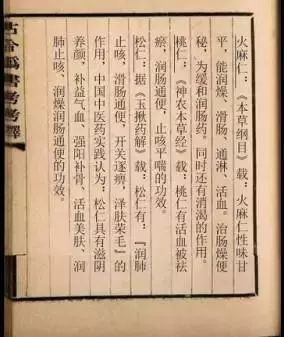 火麻仁：《本草纲目》载：火麻仁性味甘
平，能润燥、滑肠、通淋、活血。治肠燥便
秘，为缓和润肠药。同时还有消渴的作用。
桃仁：《神农本草经》载：桃仁有活血被祛
瘀，润肠通便，止咳平喘的功效。
松仁：据《玉揪药解》载：松仁有：『润肺
止咳，滑肠通便，开关逐痹，泽肤荣毛』的
作用，中国中医药实践认为：松仁具有滋阴
养颜、补益气血、强阳补骨、活血美肤、润
肺止咳、润燥润肠通便的功效。